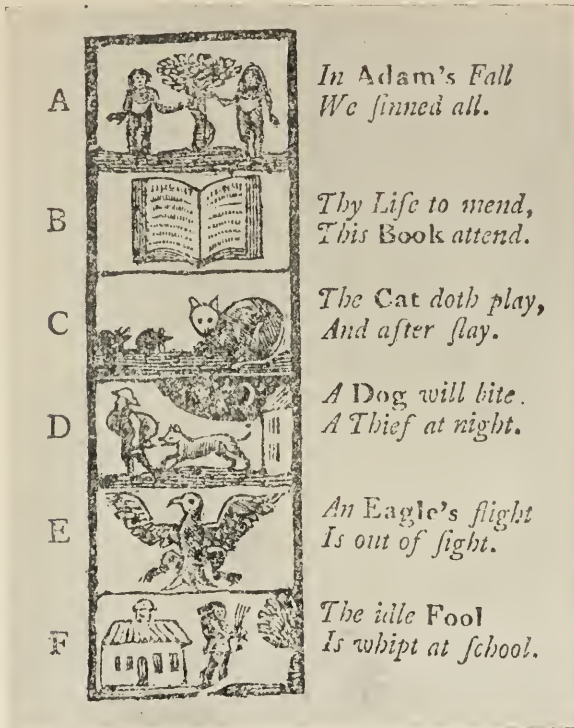 A
In Adam's Fall
We ſinned all.
B
Thy Life to mend,
This Book attend.
C
The Cat doth play,
And after ſlay.
D
A Dog will bite.
A Thief at night.
E
An Eagle's flight
Is out of ſight.
F
The idle Fool
Is whipt at ſchool.